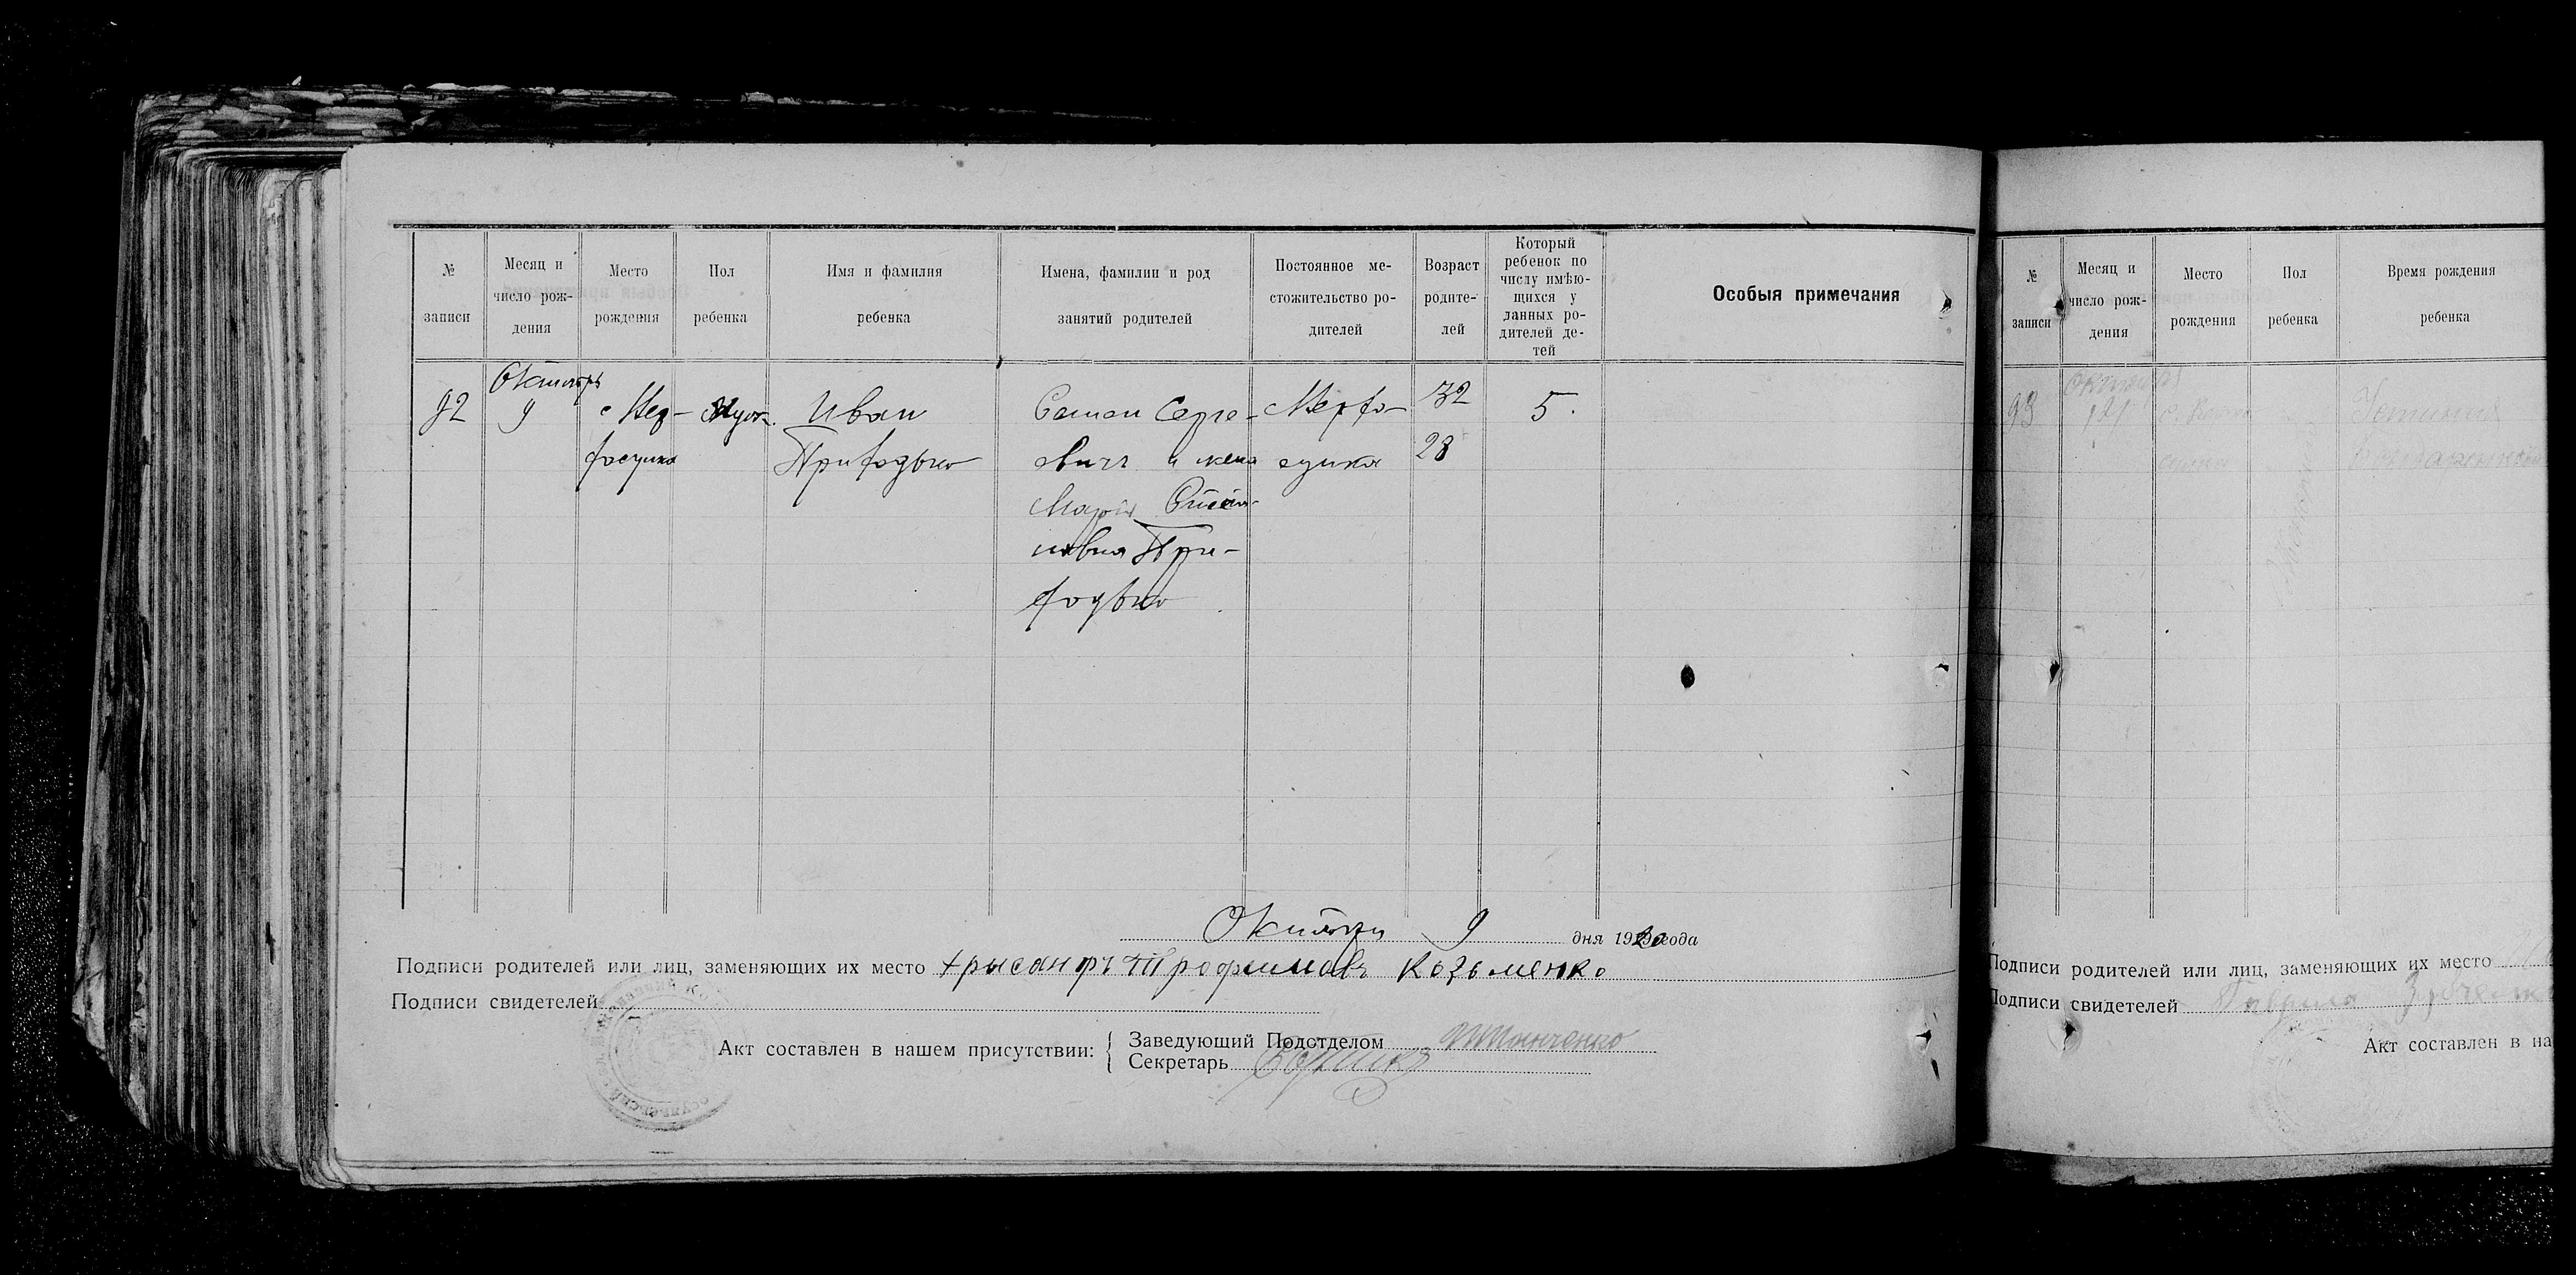 № записи
Месяц и число рож- дения
Место рождения
Пол ребенка
Имя и фамилия ребенка
Имена, фамилии и род занятий родителей
Постоянное ме- стожительство ро- дителей
Возраст родите- лей
Который ребенок по числу имѣю- щихся у данных ро- дителей де- тей
Особыя примечания
92
Октябрь
9
с Мер-
Муж.
Иван
Семен Серге-
Мерхо-
32
5.
Приходько
евичъ и жена
28
Мария
новна При-
ходько
Октября 9 дня 1920 года
Подписи родителей или лиц, заменяющих их место Хрысанфъ Трофимовъ Козьменко
Подписи свидетелей
Акт составлен в нашем присутствии:
Заведующий Подотделом
Секретарь
№ записи
Месяц и число рож- дения
Место рождения
Пол ребенка
Время рождения ребенка
93
Октября
Устиния
Подписи родителей или лиц, заменяющих их место
Подписи свидетелей
Акт составлен в на